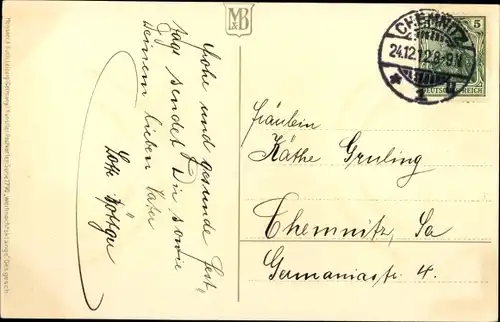 M&B
Frohe und gesunde Fest-
tage sendet Dir sowie
Deinem lieben Vater
Lotte
CHEMNITZ
24.12.12.8-9.V.
* 1
5
DEUTSCHES REICH
Fräulein
Käthe Gruling
Chemnitz, Sa
Germaniastr. 4.